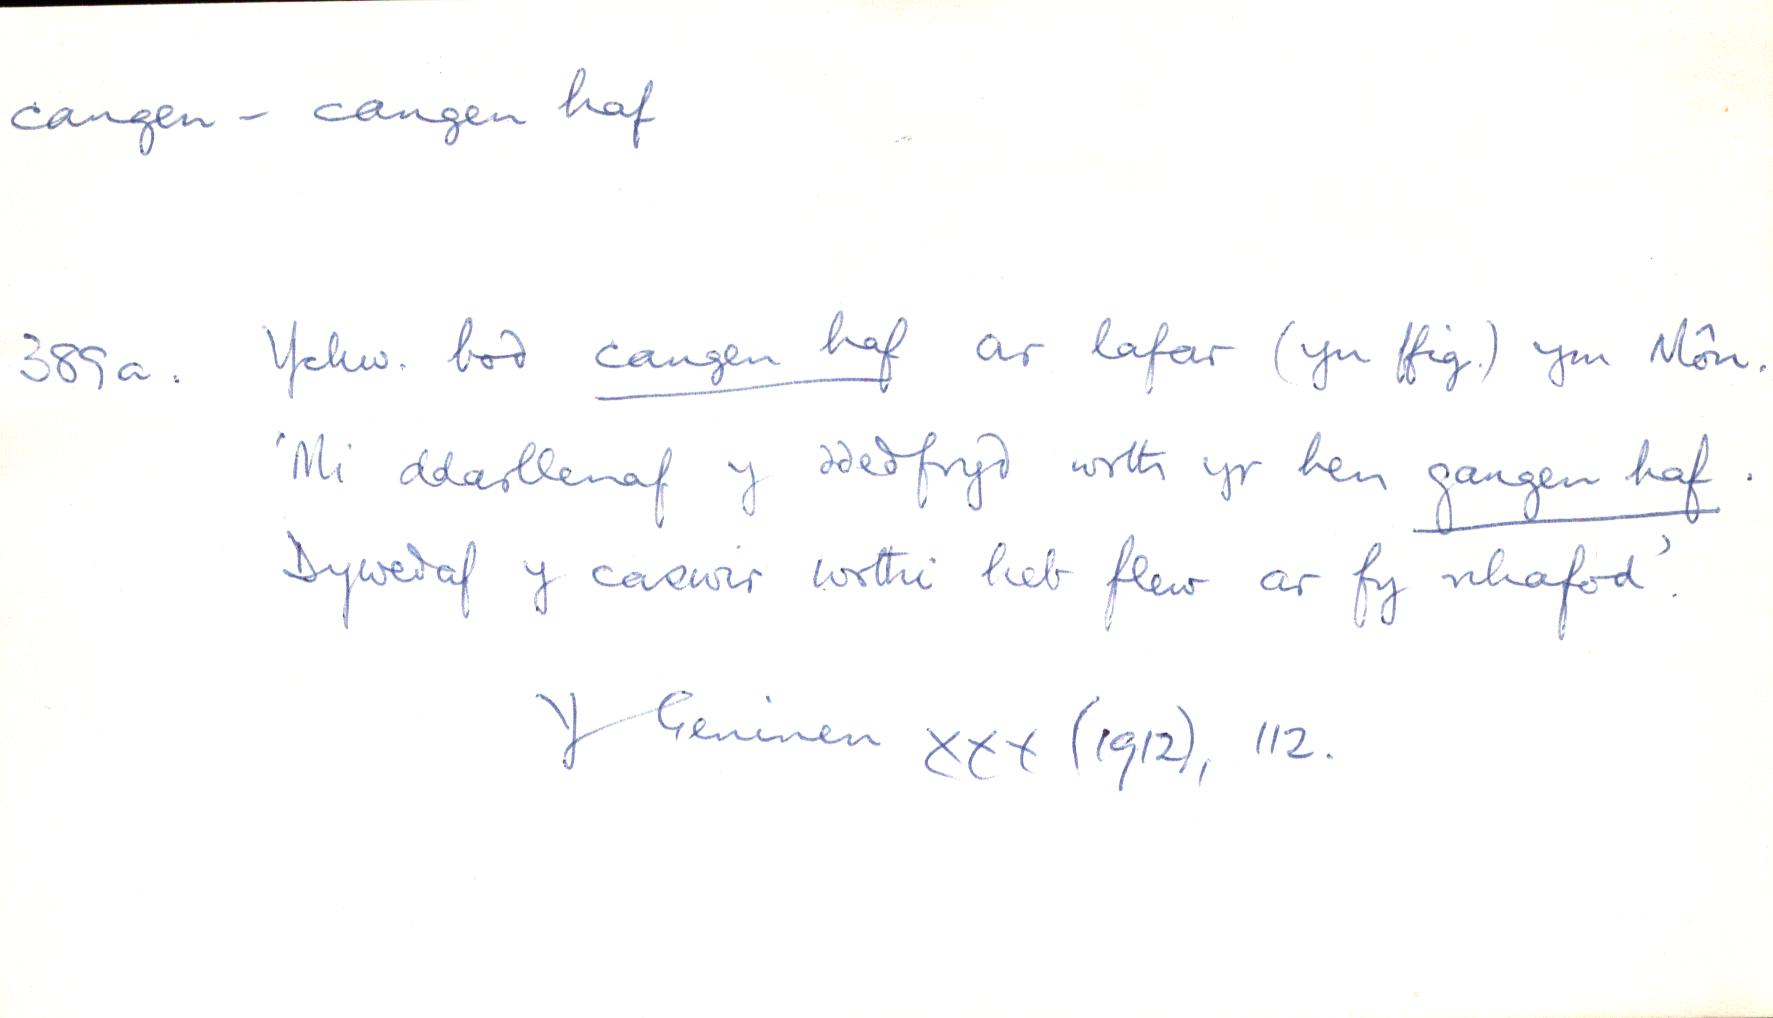 cangen – cangen haf
389a. Ychw. bod cangen haf ar lafar (yn ffig.) ym Môn.
'Mi ddarllenaf y ddedfryd wrth yr hen gangen haf.
Dywedaf y caswir wrthi heb flew ar fy nhafod'.
Y Geninen XXX (1912), 112.